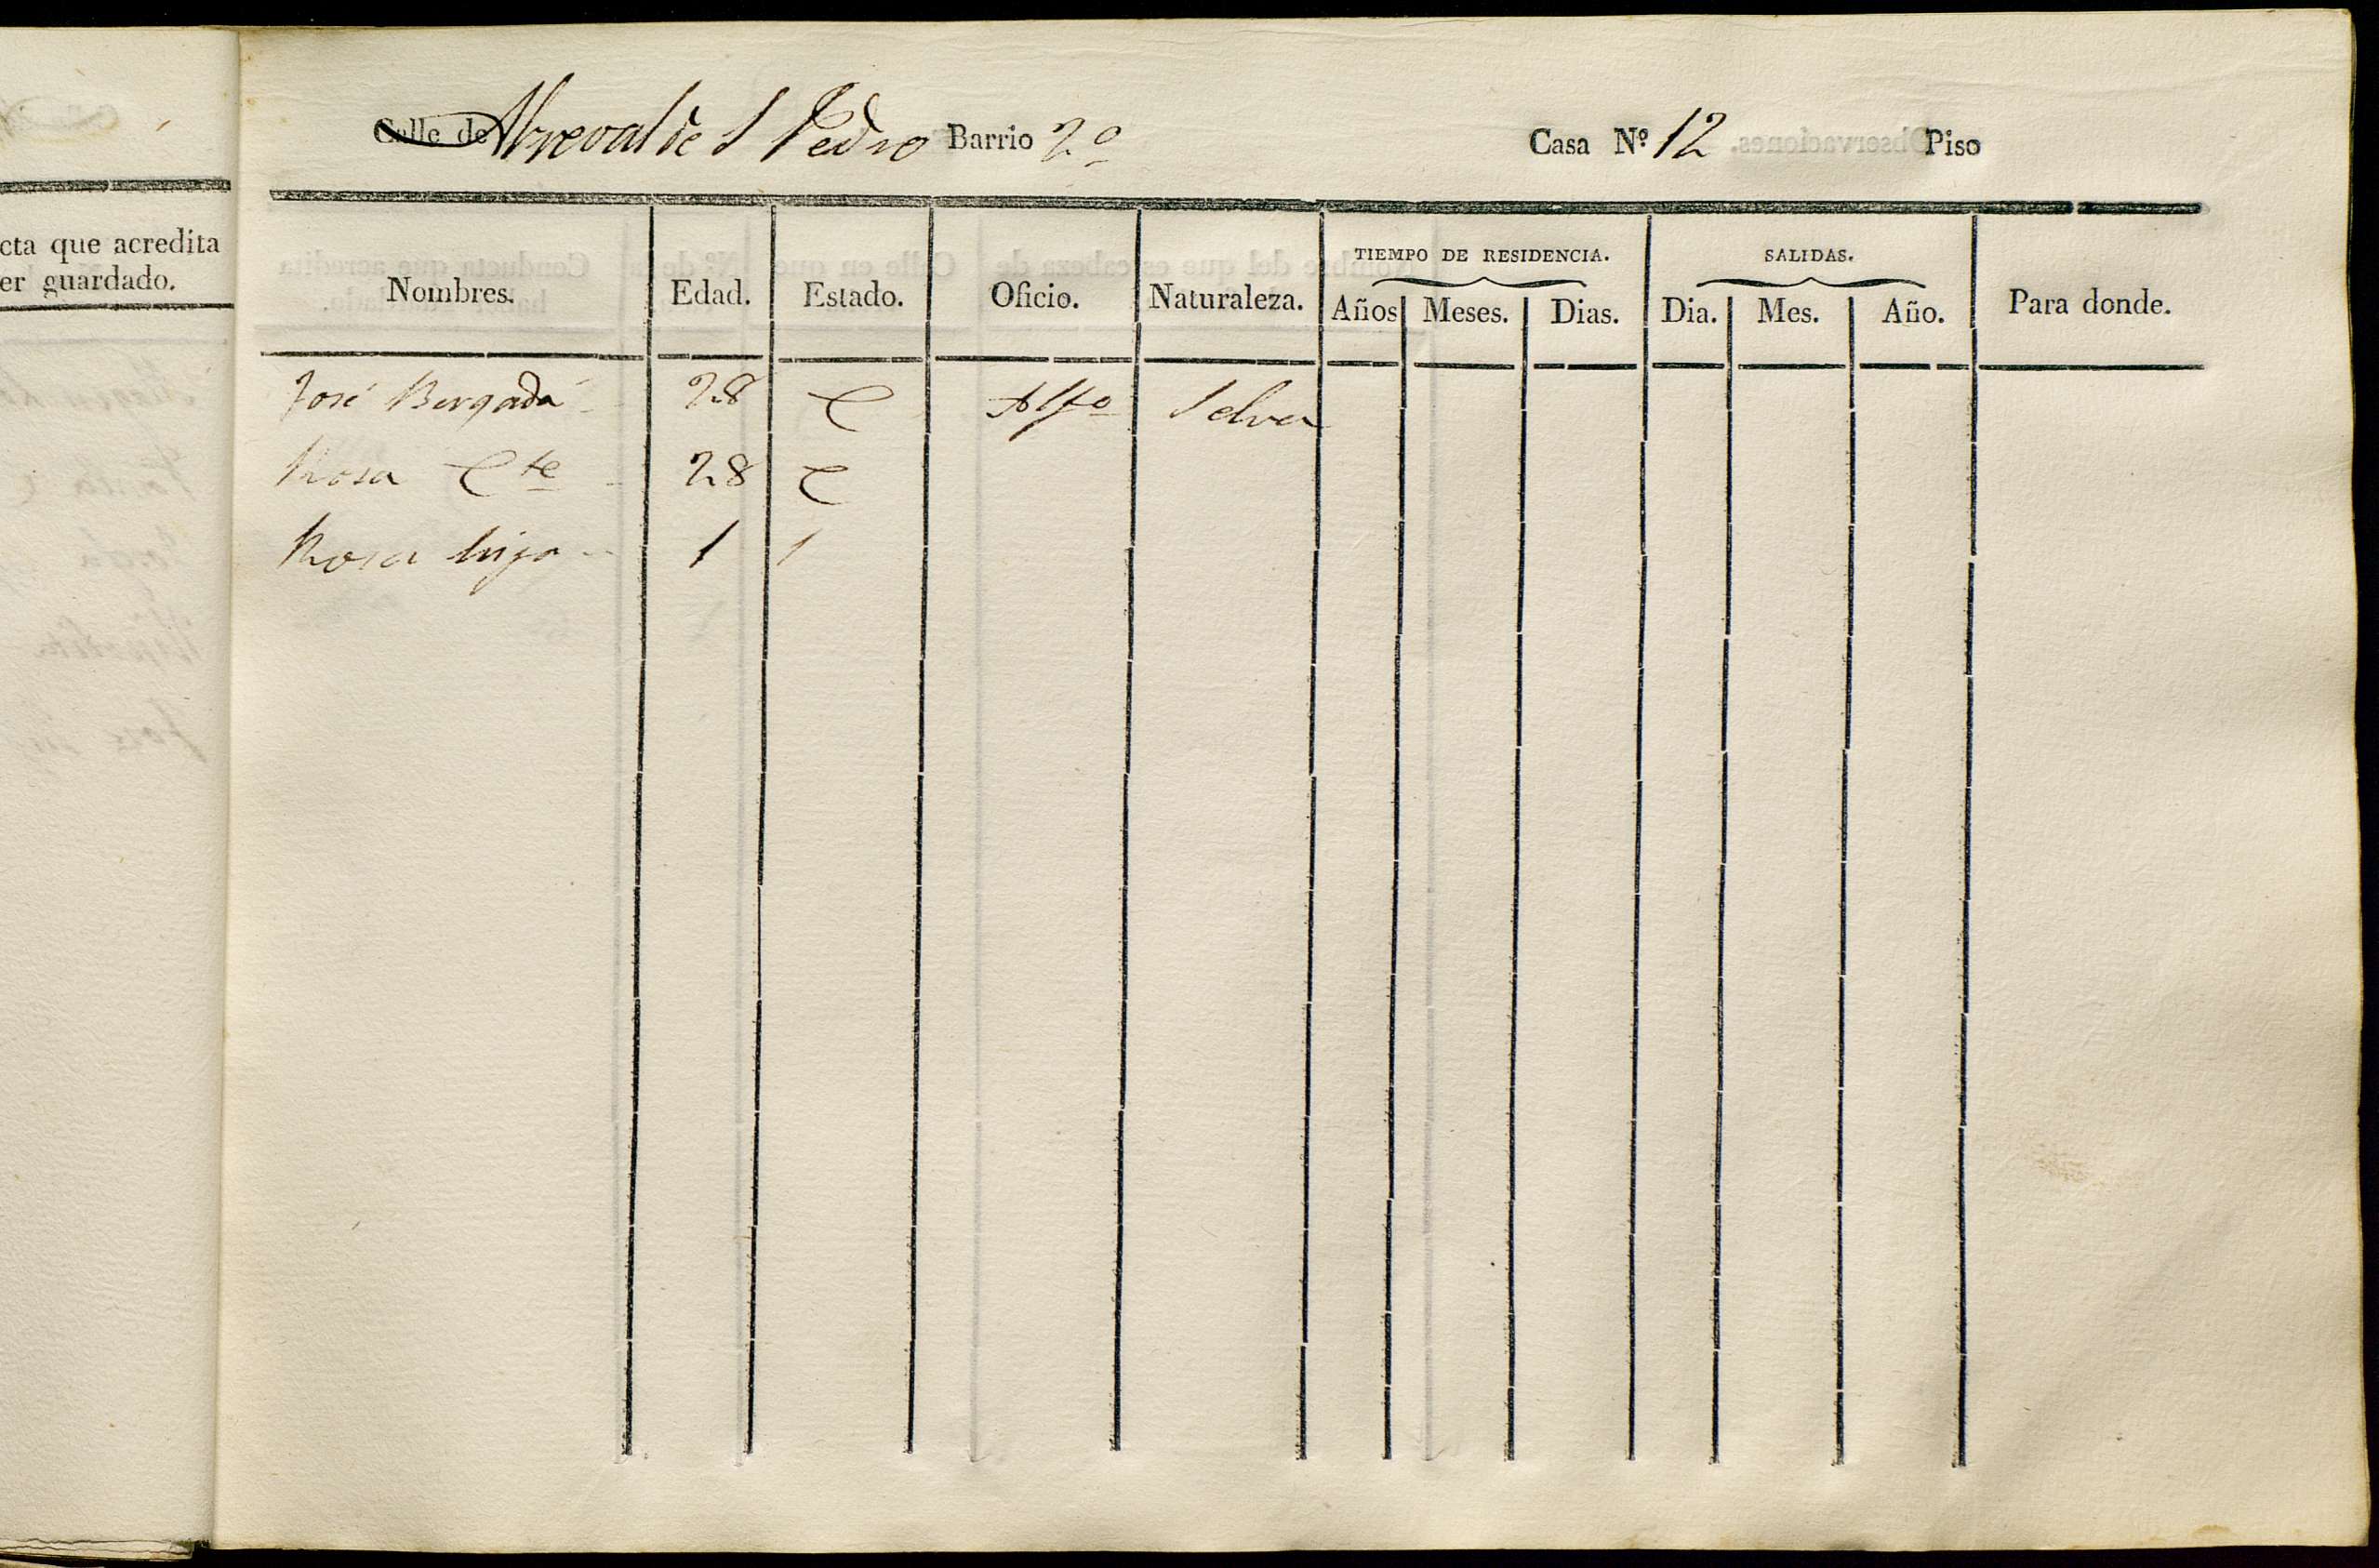 cta que acredita
er guardado.
Calle de Arreval de S Pedro Barrio 2º Casa Nº 12 Piso
TIEMPO DE RESIDENCIA. SALIDAS.
Nombres. Edad. Estado. Oficio. Naturaleza. Años Meses. Dias. Dia. Mes. Año. Para donde.
José Bergadá 28 C Alfº Selva
Rosa Cte 28 C
Rosa hija 1 S